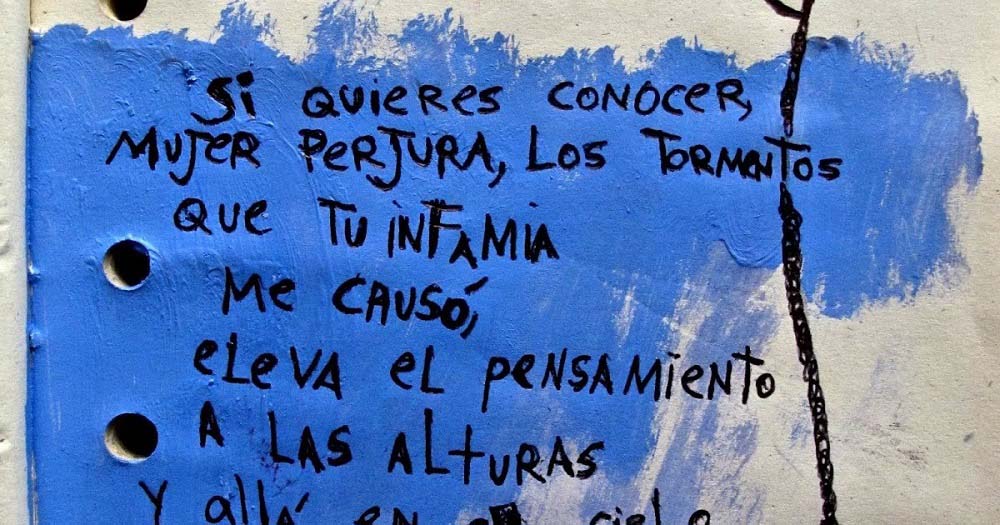 Si QUIERES CONOCER,
MUJER PERJURA, LOS TORMENTOS
QUE TU INFAMIA
ME CAUSÓ,
ELEVA EL PENSAMIENTO
A LAS ALTURAS
Y allá EN el cielo